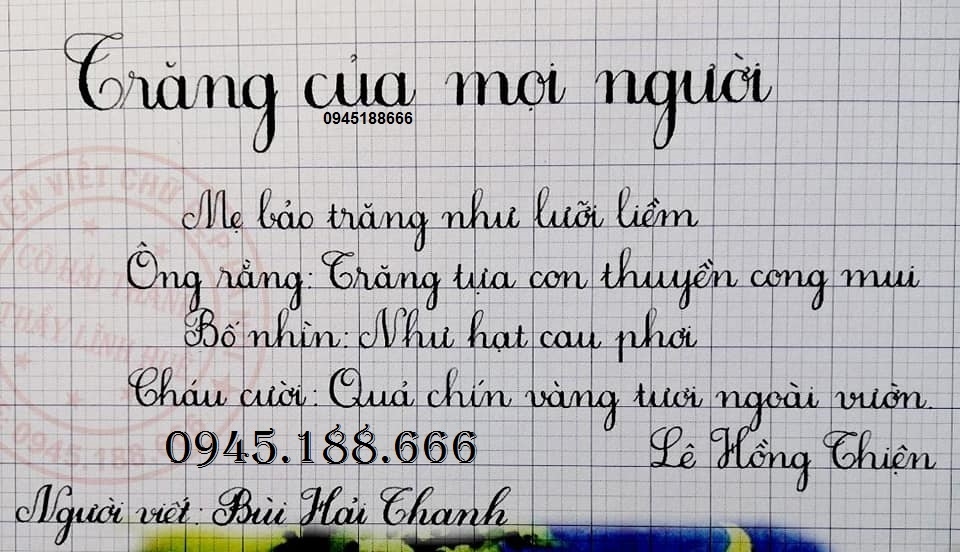 Trăng của mọi người
0945188666
Mẹ bảo trăng như lưỡi liềm
Ông rằng: Trăng tựa con thuyền cong mui
Bố nhìn: Như hạt cau phơi
Cháu cười: Quả chín vàng tươi ngoài vườn.
0945.188.666
Lê Hồng Thiện
Người viết: Bùi Hải Thanh